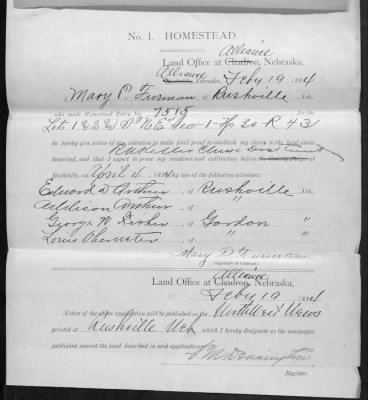 No. 1. HOMESTEAD.
Alliance
Land Office at Chadron, Nebraska,
Alliance Feby 19 1894
I, Mary P. Furman, of Rushville, Neb.
who made Homestead Entry No. 7515 for the
Lots 1 & 2 & S½ N E Sec 1 Tp 30 R 43
do hereby give notice of my intention to make final proof to establish my claim to the land above
described, and that I expect to prove my residence and cultivation before
Rushville, on April 4 1894 by two of the following witnesses:
Edward D Arthur, of Rushville Neb.
Addison Arthur, of " "
George W. Fisher, of Gordon "
Louis, of " "
Mary P Furman
(Signature of Claimant.)
Alliance
Land Office at Chadron, Nebraska,
Feby 19 1894
Notice of the above application will be published in the Northwest News
printed at Rushville Neb which I hereby designate as the newspaper
published nearest the land described in said application.
Register.